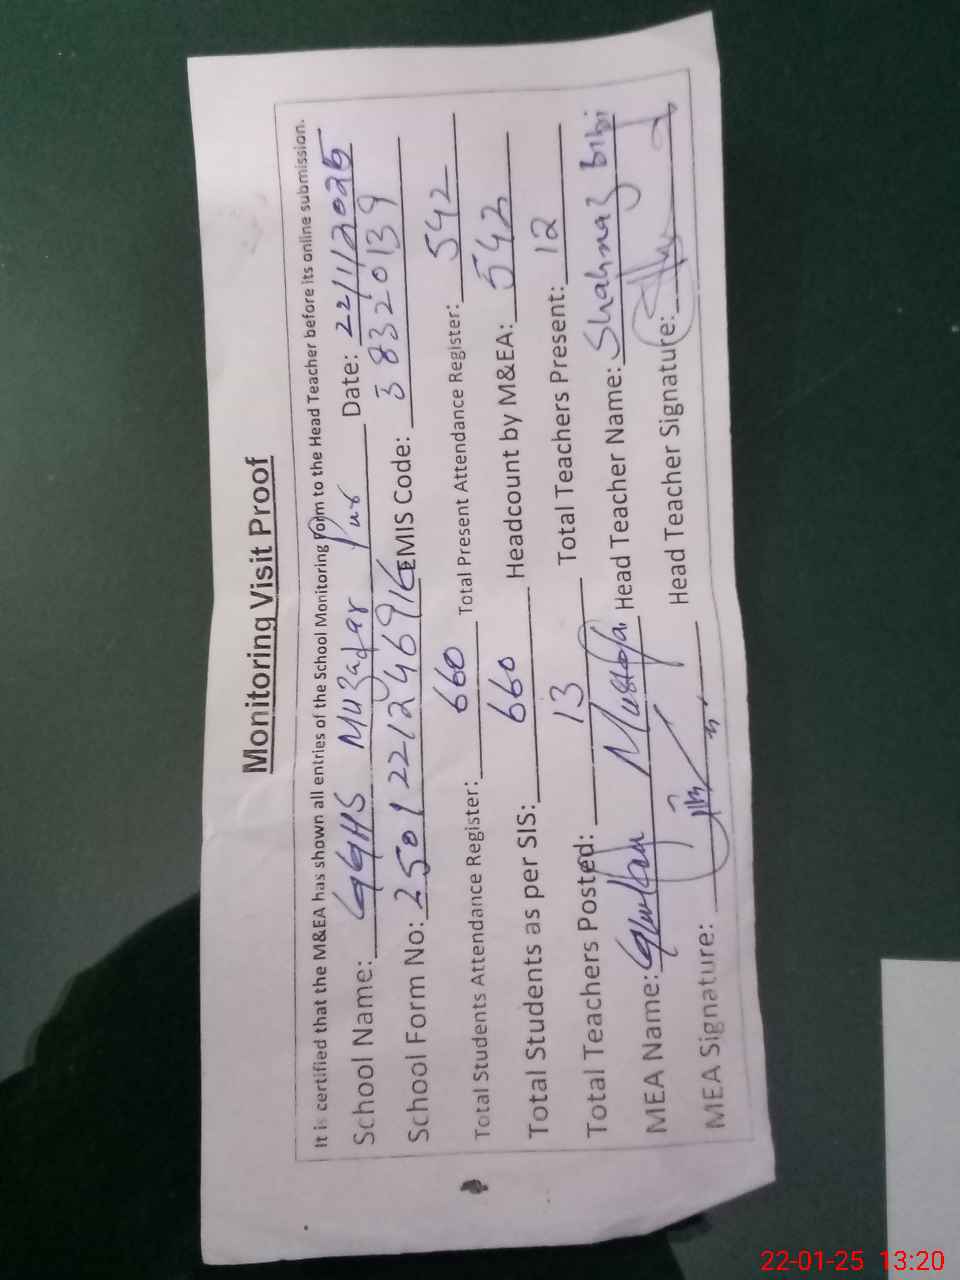 Monitoring Visit Proof
It is certified that the M&EA has shown all entries of the School Monitoring Form to the Head Teacher before its online submission.
School Name: GGHS Muzafar Pur Date: 22/1/2025
School Form No: 2501221246916 EMIS Code: 38320139
Total Students Attendance Register: 660 Total Present Attendance Register: 542
Total Students as per SIS: 660 Headcount by M&EA: 542
Total Teachers Posted: 13 Total Teachers Present: 12
MEA Name: Ghulam Mustafa Head Teacher Name: Shahnaz bibi
MEA Signature: Head Teacher Signature:
22-01-25 13:20